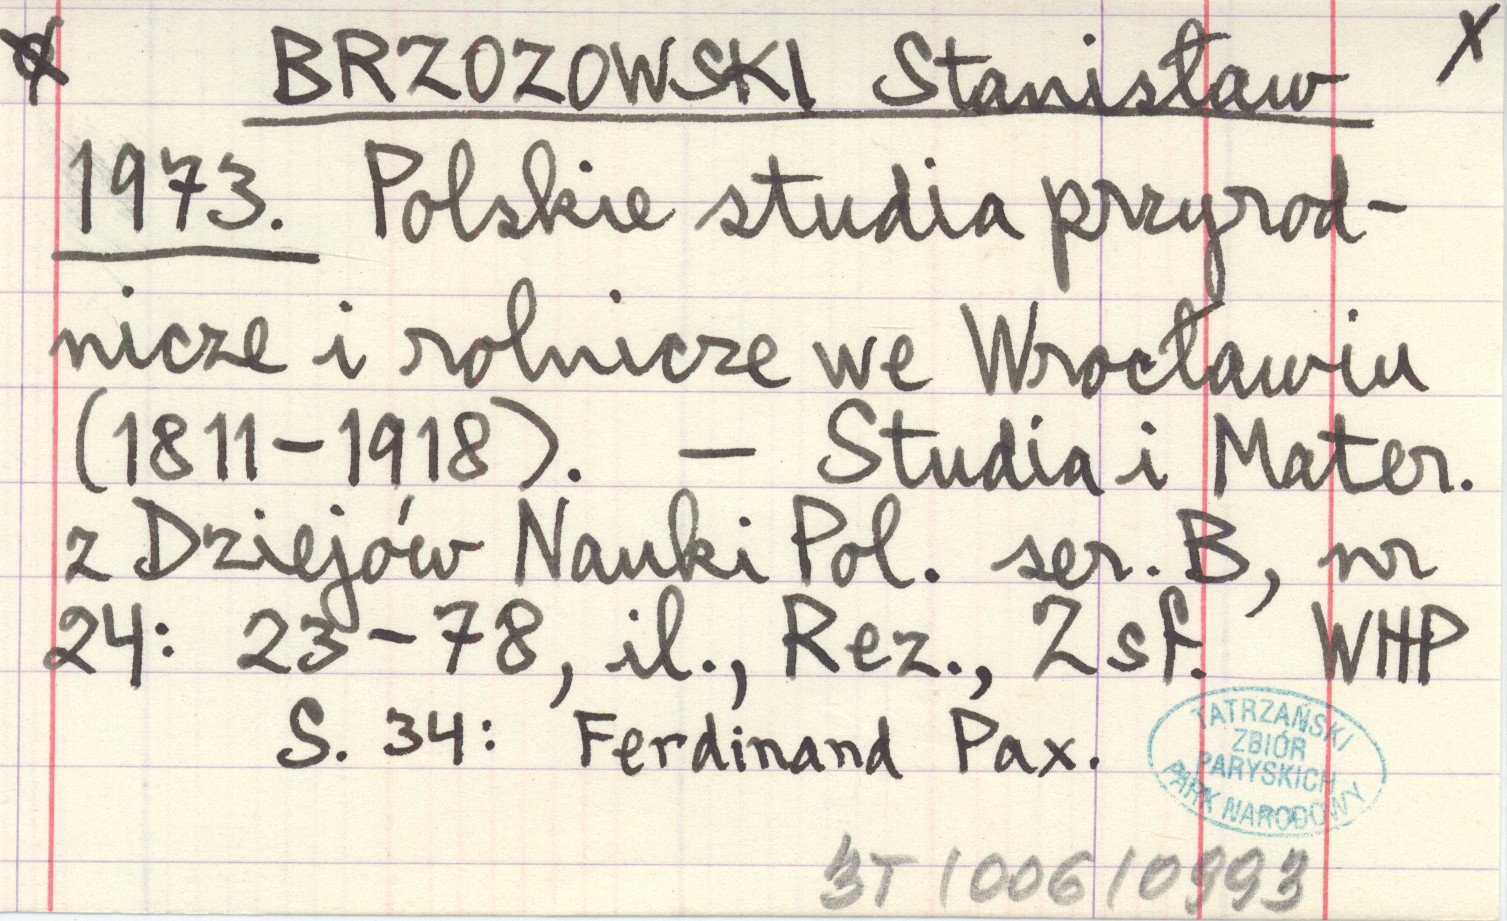 BRZOZOWSKI Stanisław
1973. Polskie studia przyrod-
nicze i rolnicze we Wrocławiu
(1811-1918). — Studia i Mater.
z Dziejów Nauki Pol. ser. B, nr
24: 23-78, il., Rez., Zsf. WHP
S. 34: Ferdinand Pax.
TATRZAŃSKI
ZBIÓR
PARYSKICH
PARK NARODOWY
3T/006/0993